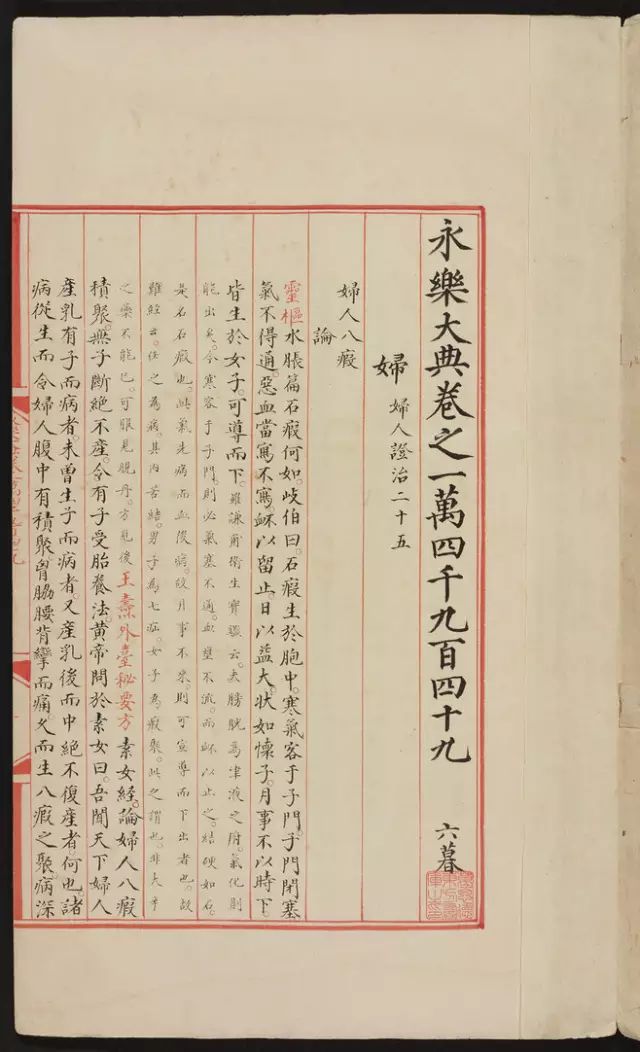 永樂大典卷之一萬四千九百四十九 六暮
婦 婦人證治二十五
婦人八瘕
論
靈樞水脹篇石瘕何如。岐伯曰。石瘕生於胞中。寒氣客于子門。子門閉塞
氣不得通。惡血當寫不寫。衃以留止。日以益大。狀如懷子。月事不以時下。
皆生於女子。可導而下。羅謙甫衛生寶鑑云。夫膀胱爲津液之府。氣化則
能出矣。今寒客于子門。則必氣塞不通。血壅不流。而衃以止之。結硬如石。
是名石瘕也。此氣先病而血後病。故月事不來。則可宣導而下出者也。故
難經云。任之爲病。其內苦結。男子爲七疝。女子爲瘕聚。此之謂也。非大辛
之藥不能已。可服見晛丹。方見後王燾外臺秘要方素女經。論婦人八瘕
積聚。無子斷絕不産。令有子受胎養法。黃帝問於素女曰。吾聞天下婦人
産乳有子而病者。未曾生子而病者。又産乳後而中絕不復産者。何也。諸
病從生而令婦人腹中有積聚。胷脇腰背攣而痛。久而生八瘕之聚。病深